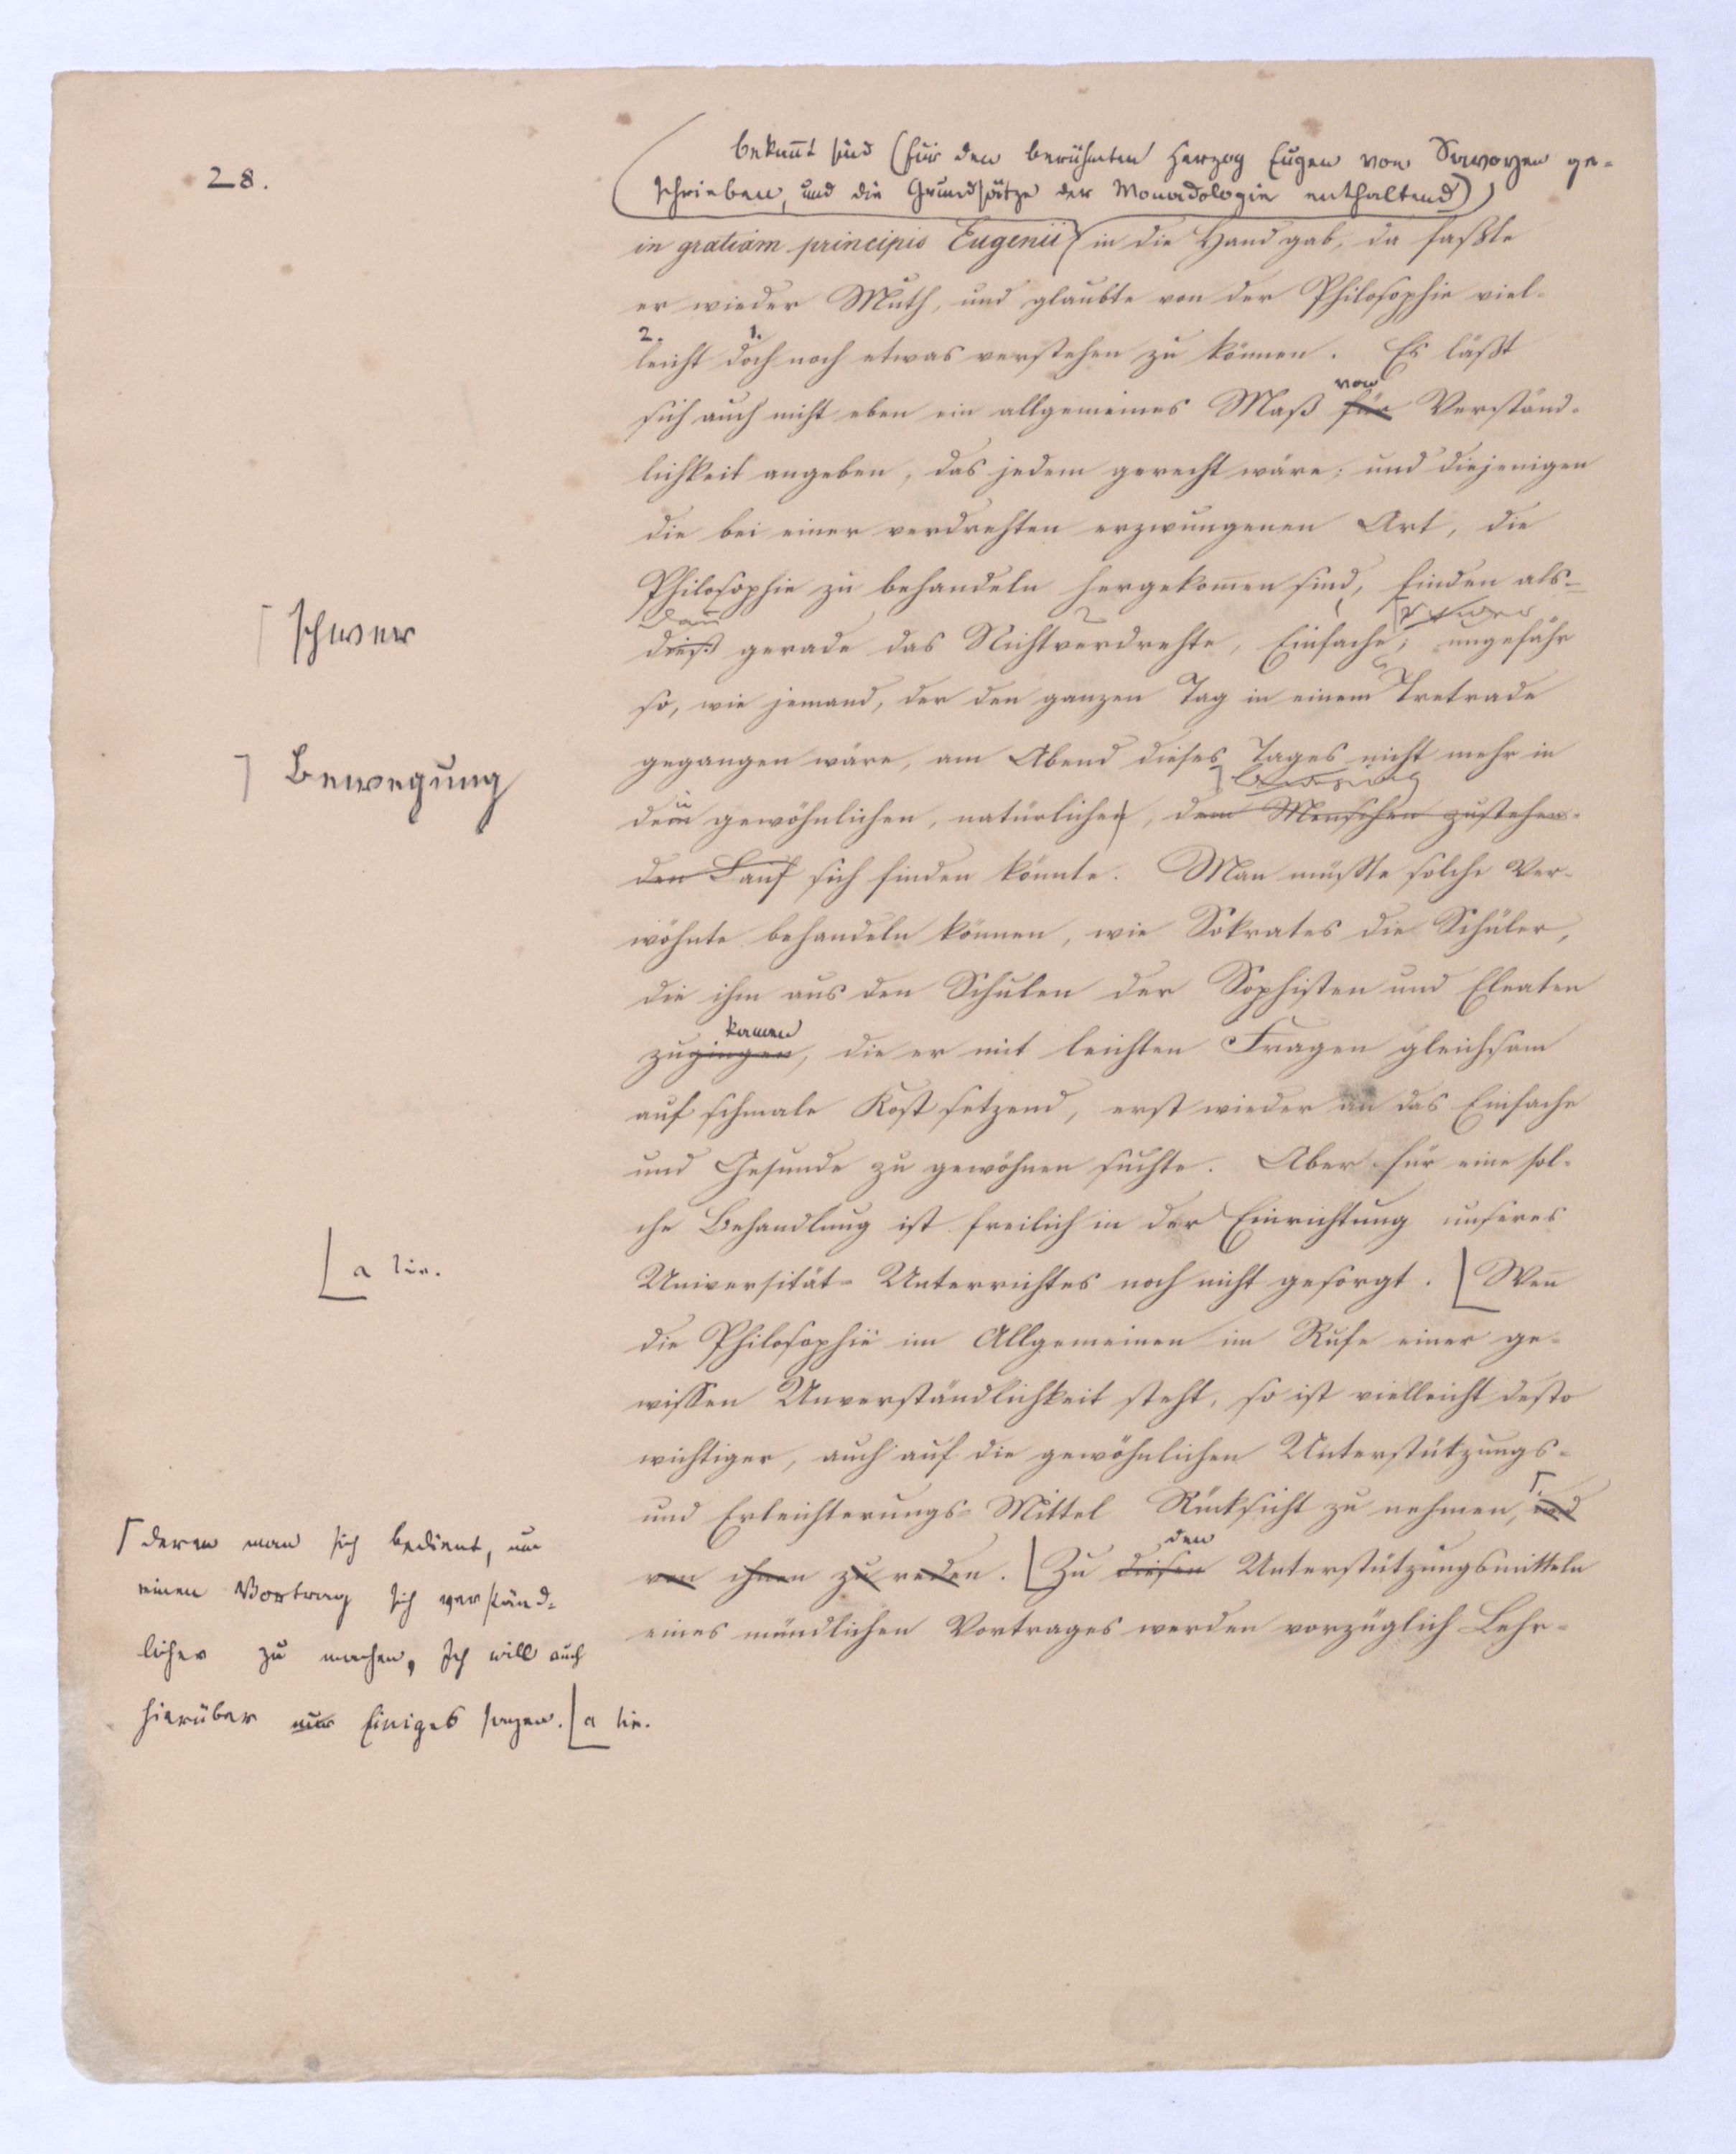 28.
bekañt sind (für den berühmten Herzog Eugen von Savoyen ge-
schrieben, und die Grundsätze der Monadologie enthaltend)
in gratiam principis Eugenii in die Hand gab, da faßte
er wieder Muth, und glaubte von der Philosophie viel-
2. 1.
leicht doch noch etwas verstehen zu können. Es läßt
von
sich auch nicht eben ein allgemeines Maß für Verständ-
lichkeit angeben, das jedem gerecht wäre; und diejenigen
die bei einer verdrehten erzwungenen Art, die
Philosophie zu behandeln hergekom̄en sind, finden als-
dañ schwer
dieß gerade das Nichtverdrehte, Einfache; ungefähr
schwer
so, wie jemand, der den ganzen Tag in einem Tretrade
gegangen wäre, am Abend dieses Tages nicht mehr in
Bewegung
Bewegung
dem gewöhnlichen, natürlichen, dem Menschen zustehen-
den Lauf sich finden könnte. Man müßte solche Ver-
wöhnte behandeln können, wie Sokrates die Schüler,
die ihm aus den Schulen der Sophisten und Eleaten
kamen
zugingen, die er mit leichten Fragen gleichsam
auf schmale Kost setzend, erst wieder an das Einfache
und Gesunde zu gewöhnen suchte. Aber für eine sol-
che Behandlung ist freilich in der Einrichtung unseres
a lin.
Universität-Unterrichtes noch nicht gesorgt. Weñ
die Philosophie im Allgemeinen im Rufe einer ge-
wissen Unverständlichkeit steht, so ist vielleicht desto
wichtiger, auch auf die gewöhnlichen Unterstützungs-
und Erleichterungs-Mittel Rücksicht zu nehmen, und
den
von ihnen zu reden. Zu diesen Unterstützungsmitteln
eines mündlichen Vortrages werden vorzüglich Lehr-
deren man sich bedient, um
einen Vortrag sich verständ-
licher zu machen, Ich will auch
hierüber nur Einiges sagen. a lin.